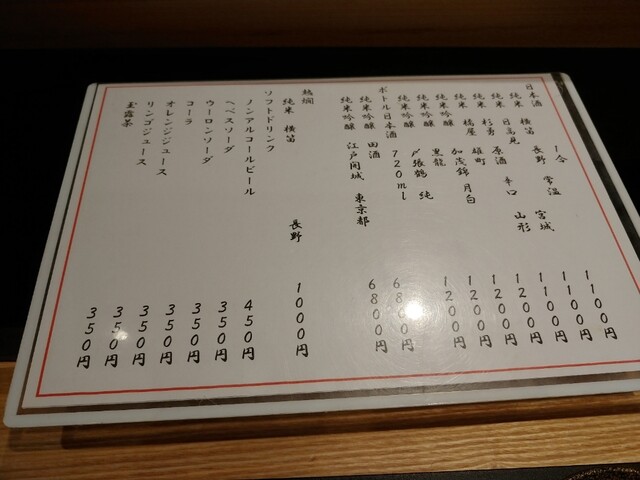 日本酒 一合
純米 横笛 長野 常温 1100円
純米 日高見 宮城 1100円
純米 杉勇 原酒 辛口 山形 1100円
純米 橘屋 雄町 1200円
純米吟醸 加茂錦 月白 1200円
純米吟醸 黒龍 1200円
純米吟醸 〆張鶴 純 1200円
ボトル日本酒 720ml
純米吟醸 田酒 6800円
純米吟醸 江戸開城 東京都 6800円
熱燗
純米 横笛 長野 1000円
ソフトドリンク
ノンアルコールビール 450円
ヘベスソーダ 350円
ウーロンソーダ 350円
コーラ 350円
オレンジジュース 350円
リンゴジュース 350円
玉露茶 350円